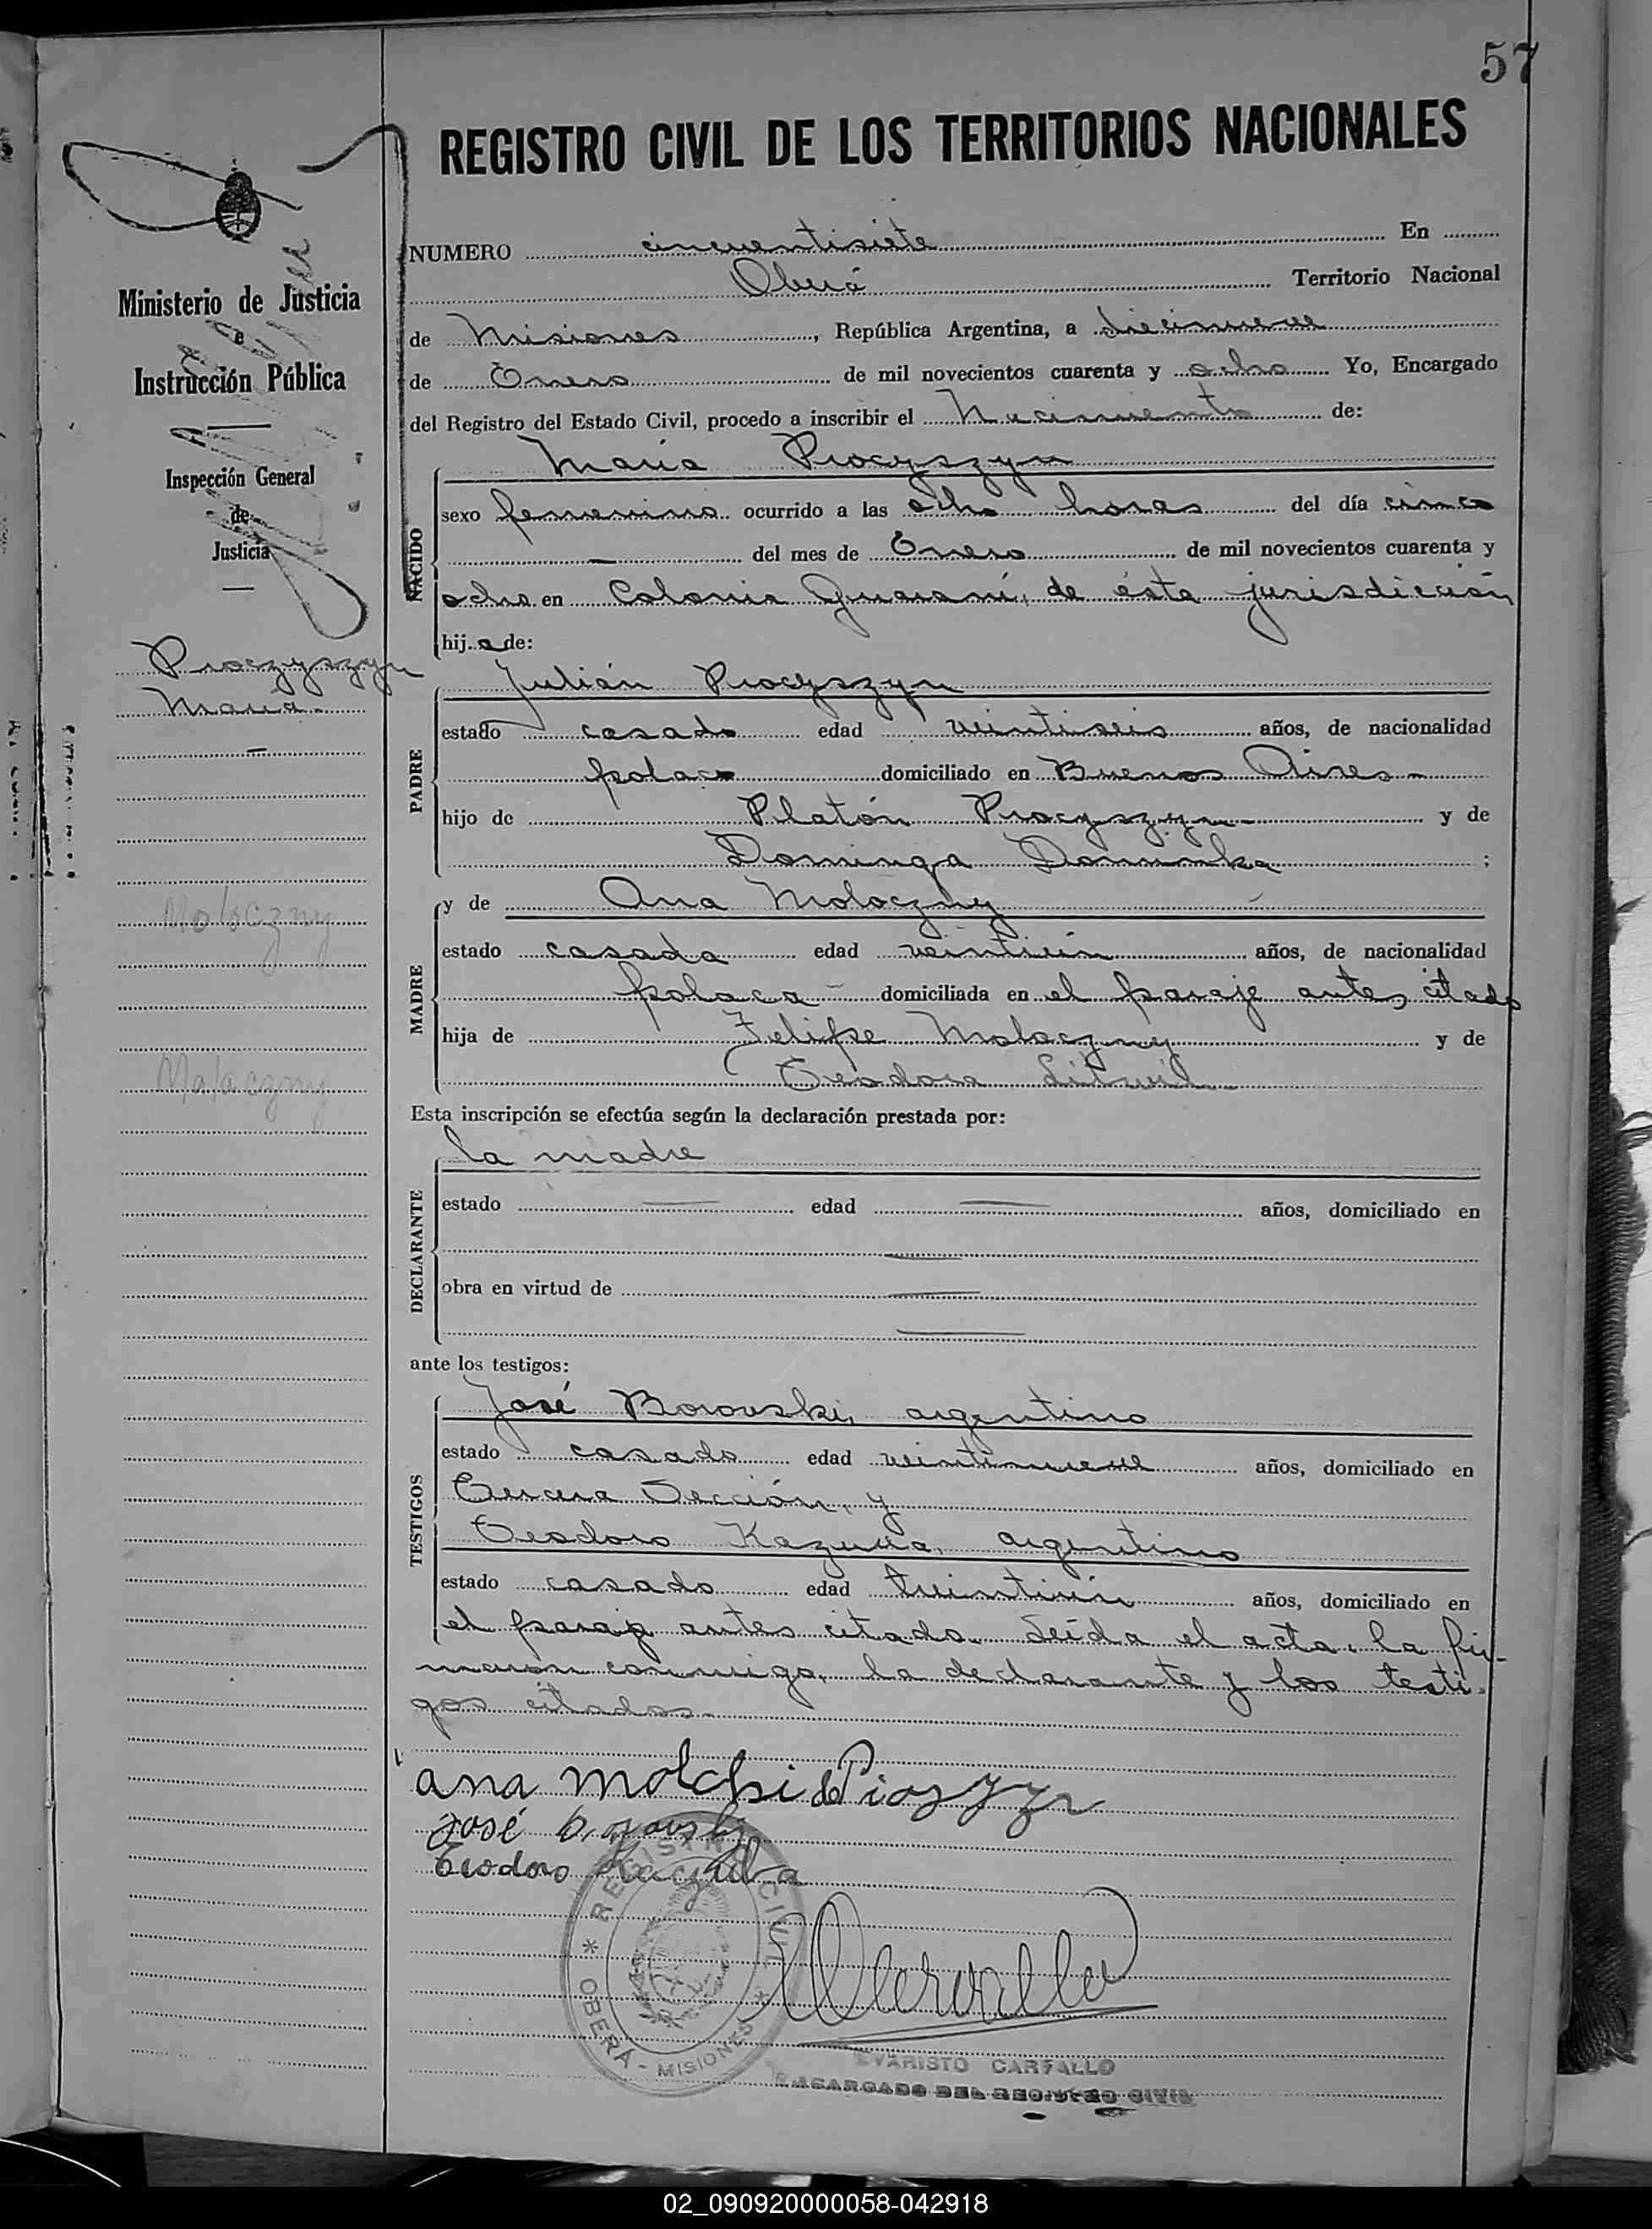 57
REGISTRO CIVIL DE LOS TERRITORIOS NACIONALES
Ministerio de Justicia
e
Instrucción Pública
Inspección General
de
Justicia
Proczyszyn
María
Moloczny
Malaczny
NUMERO cincuentisiete En
Oberá Territorio Nacional
de Misiones, República Argentina, a diecinueve
de Enero de mil novecientos cuarenta y ocho Yo, Encargado
del Registro del Estado Civil, procedo a inscribir el Nacimiento de:
NACIDO
María Procyszyn
sexo femenino ocurrido a las ocho horas del día cinco
del mes de Enero de mil novecientos cuarenta y
ocho en Colonia Guaraní, de ésta jurisdicción
hija de:
PADRE
Julián Procyszyn
estado casado edad veintiseis años, de nacionalidad
polaco domiciliado en Buenos Aires
hijo de Platón Procyszyn y de
Dominga ;
MADRE
y de Ana Moloczny
estado casada edad veintiún años, de nacionalidad
polaca domiciliada en el paraje antes citado
hija de Felipe Moloczny y de
Teodora
Esta inscripción se efectúa según la declaración prestada por:
DECLARANTE
la madre
estado edad años, domiciliado en
obra en virtud de
ante los testigos:
TESTIGOS
José Borowski, argentino
estado casado edad veintinueve años, domiciliado en
Tercera Sección, y
Teodoro argentino
estado casado edad años, domiciliado en
el paraje antes citado. Leída el acta, la fir-
maron conmigo, la declarante y los testi-
gos citados.
ana molchi de
José
Teodoro
REGISTRO CIVIL
* OBERÁ - MISIONES *
EVARISTO CARVALLO
ENCARGADO DEL REGISTRO CIVIL
02_090920000058-042918